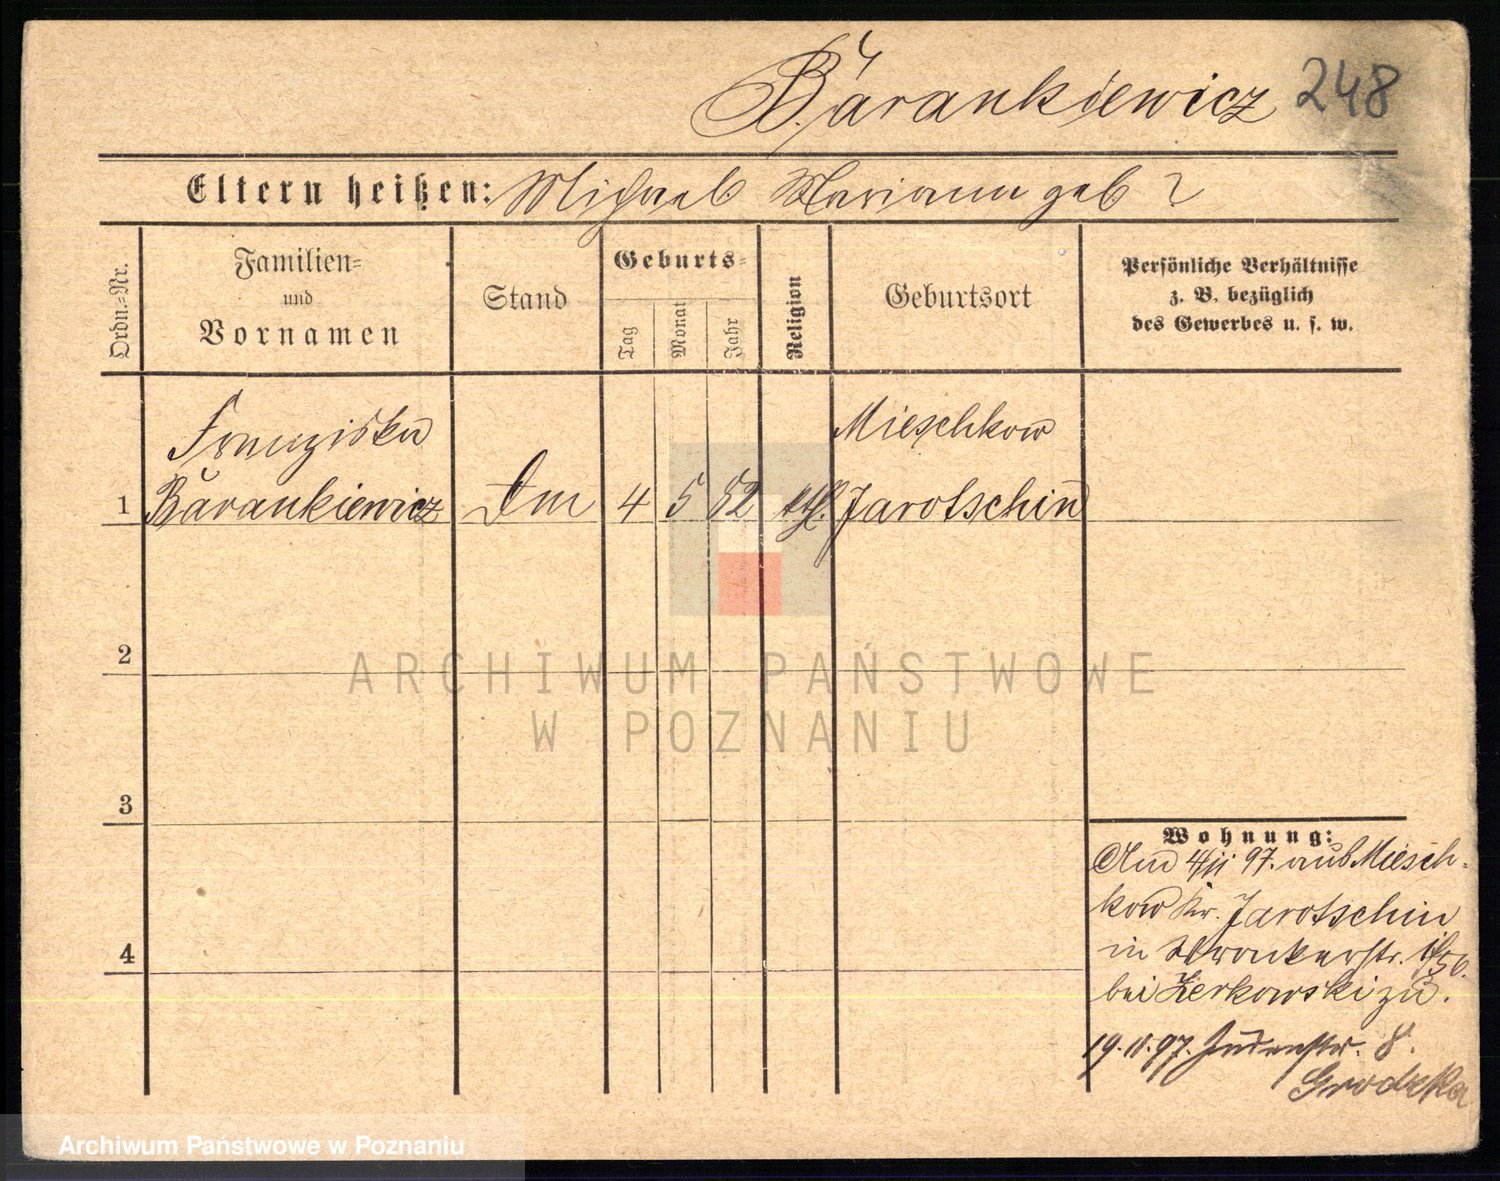 Barankiewicz 248
Eltern heißen: Michael Marianna geb ?
Ordn.=Nr.
Familien=
und
Vornamen
Stand
Geburts=
Tag
Monat
Jahr
Religion
Geburtsort
Persönliche Verhältnisse
z. B. bezüglich
des Gewerbes u. s. w.
Franziska Mieschkow
1 Barankiewicz 4 5 52 kth. Jarotschin
2
3
4
Wohnung:
Am 4/11 97. aus Miesch-
kow Kr. Jarotschin
in Wronkerstr.
bei Zerkowski zu.
19.11.97. Judenstr. 8.
Grodzka
ARCHIWUM PAŃSTWOWE
W POZNANIU
Archiwum Państwowe w Poznaniu